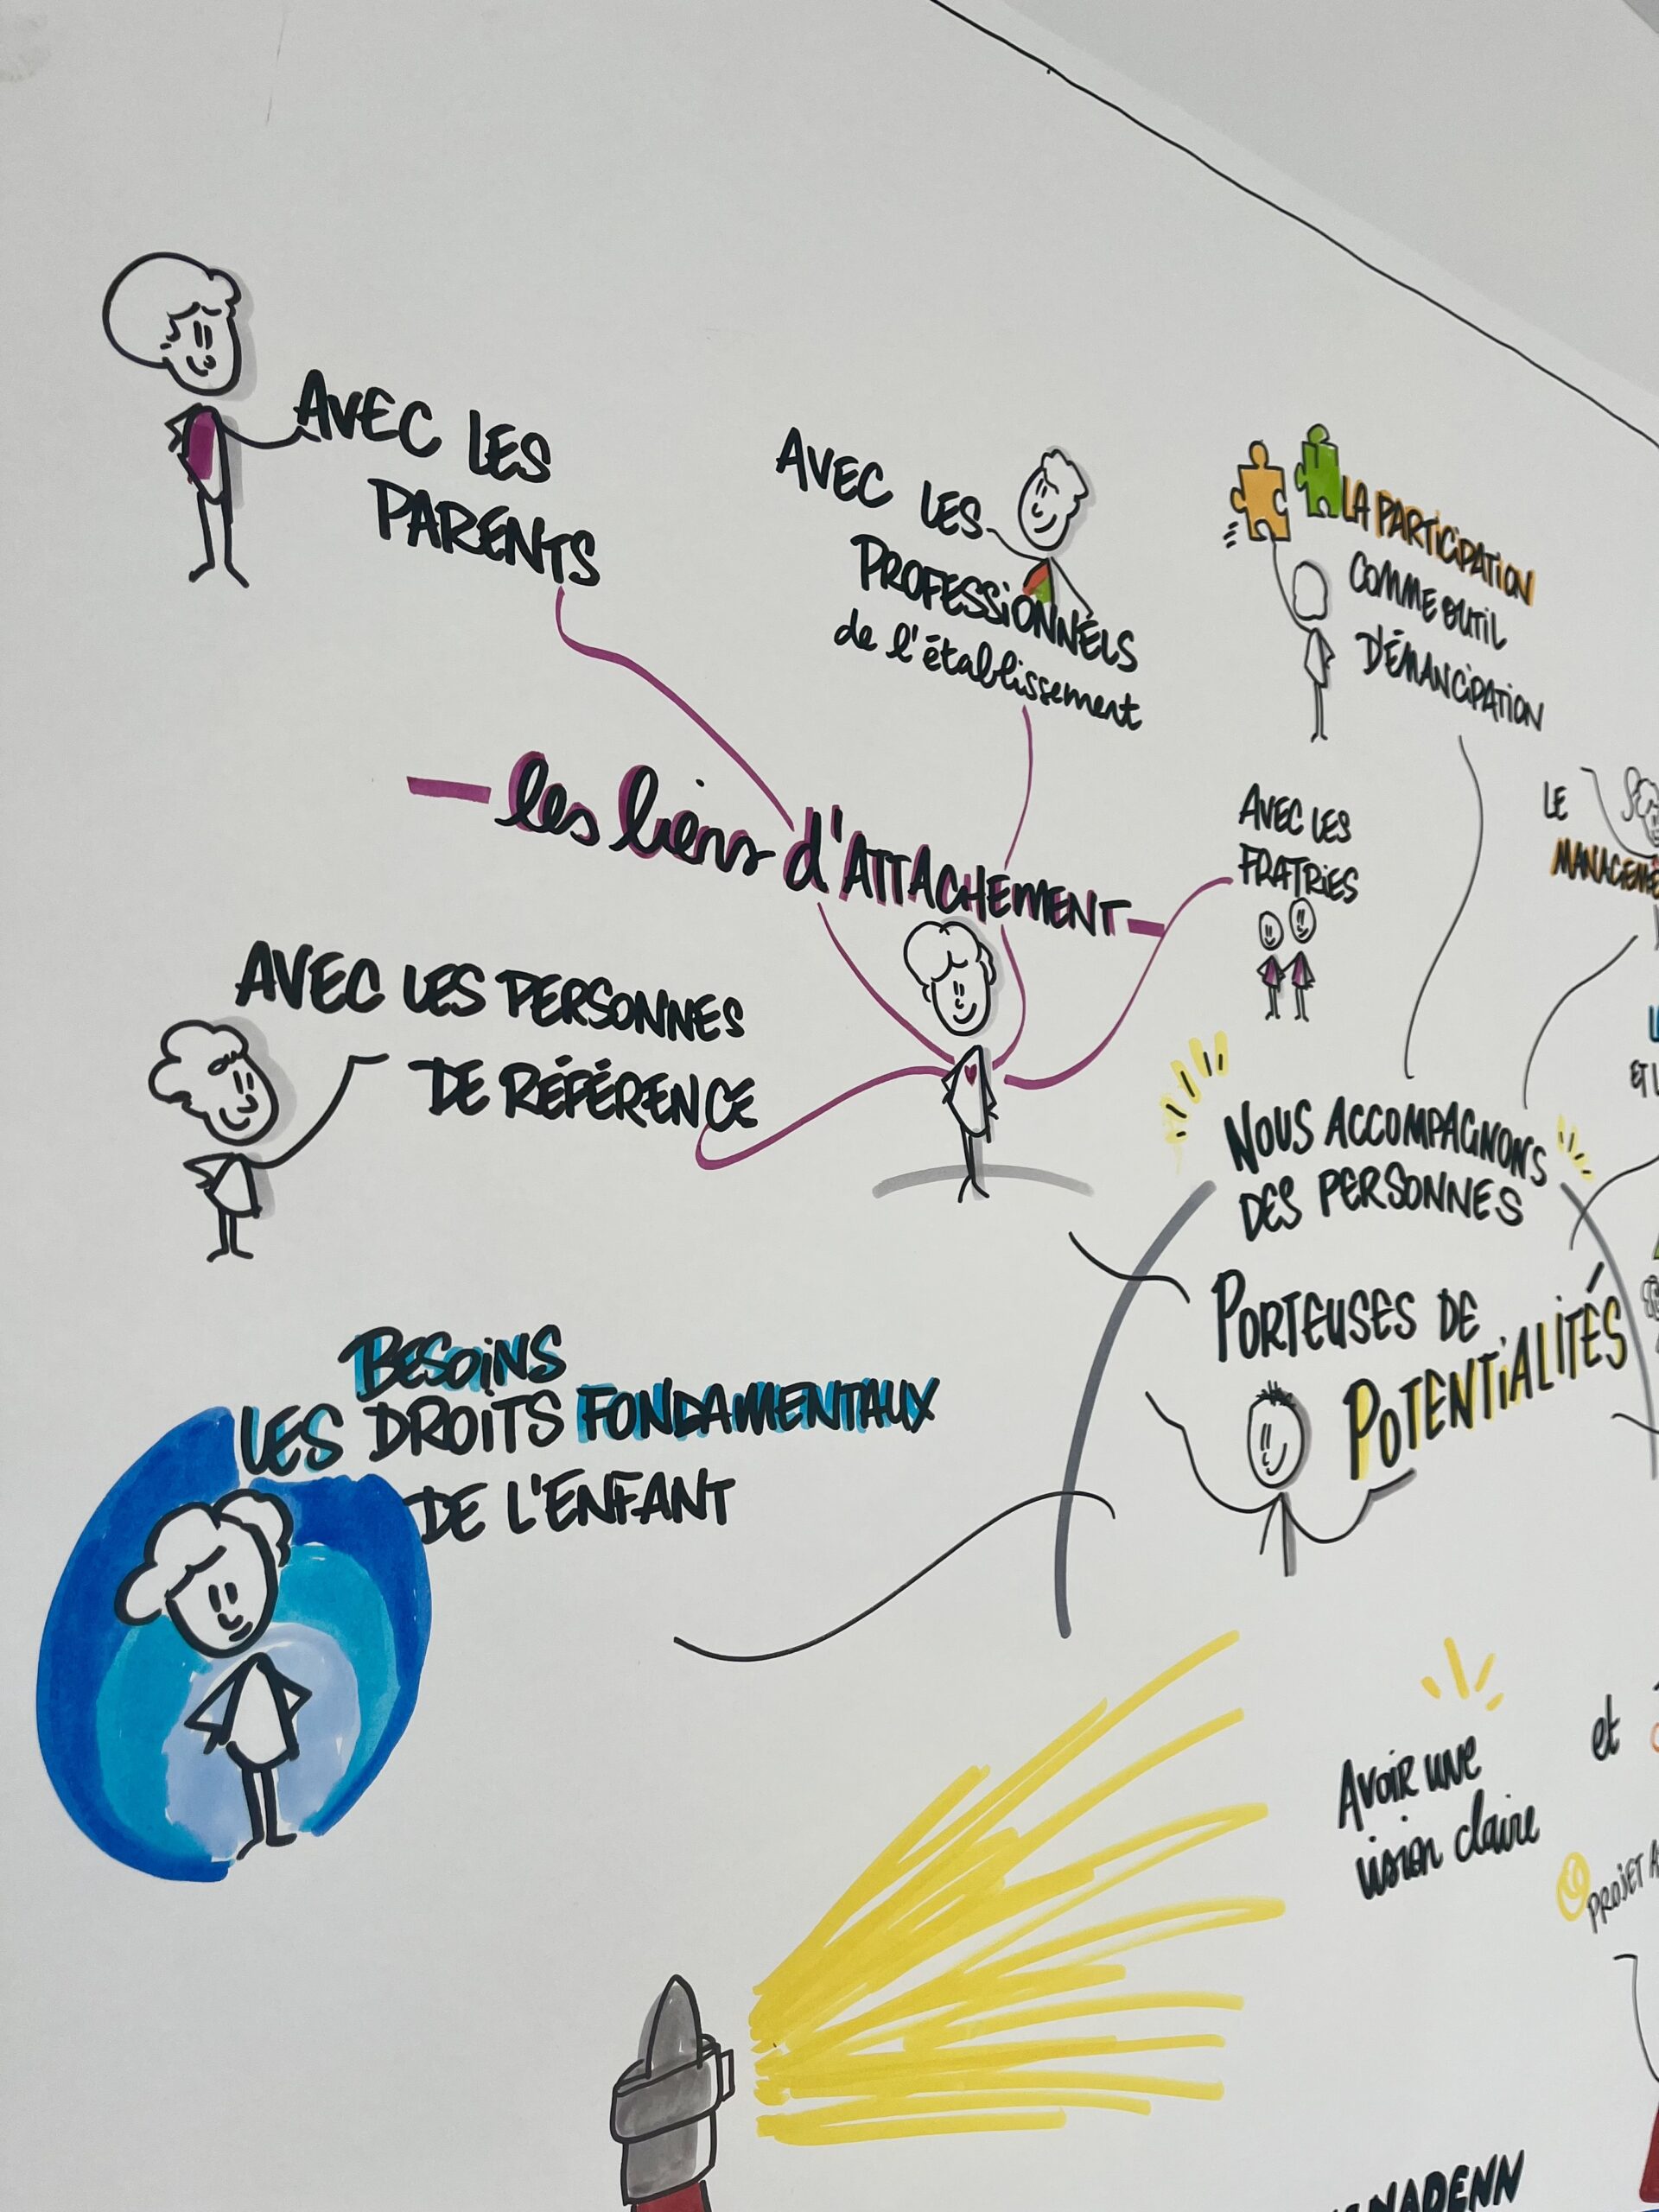 AVEC LES
PARENTS
AVEC LES
PROFESSIONNELS
de l'établissement
LA PARTICIPATION
COMME OUTIL
D'ÉMANCIPATION
les liens d'ATTACHEMENT
AVEC LES
FRATRIES
LE
AVEC LES PERSONNES
DE RÉFÉRENCE
NOUS ACCOMPAGNONS
DES PERSONNES
PORTEUSES DE
POTENTIALITÉS
BESOINS
LES DROITS FONDAMENTAUX
DE L'ENFANT
AVOIR UNE
vision claire
et
PROJET